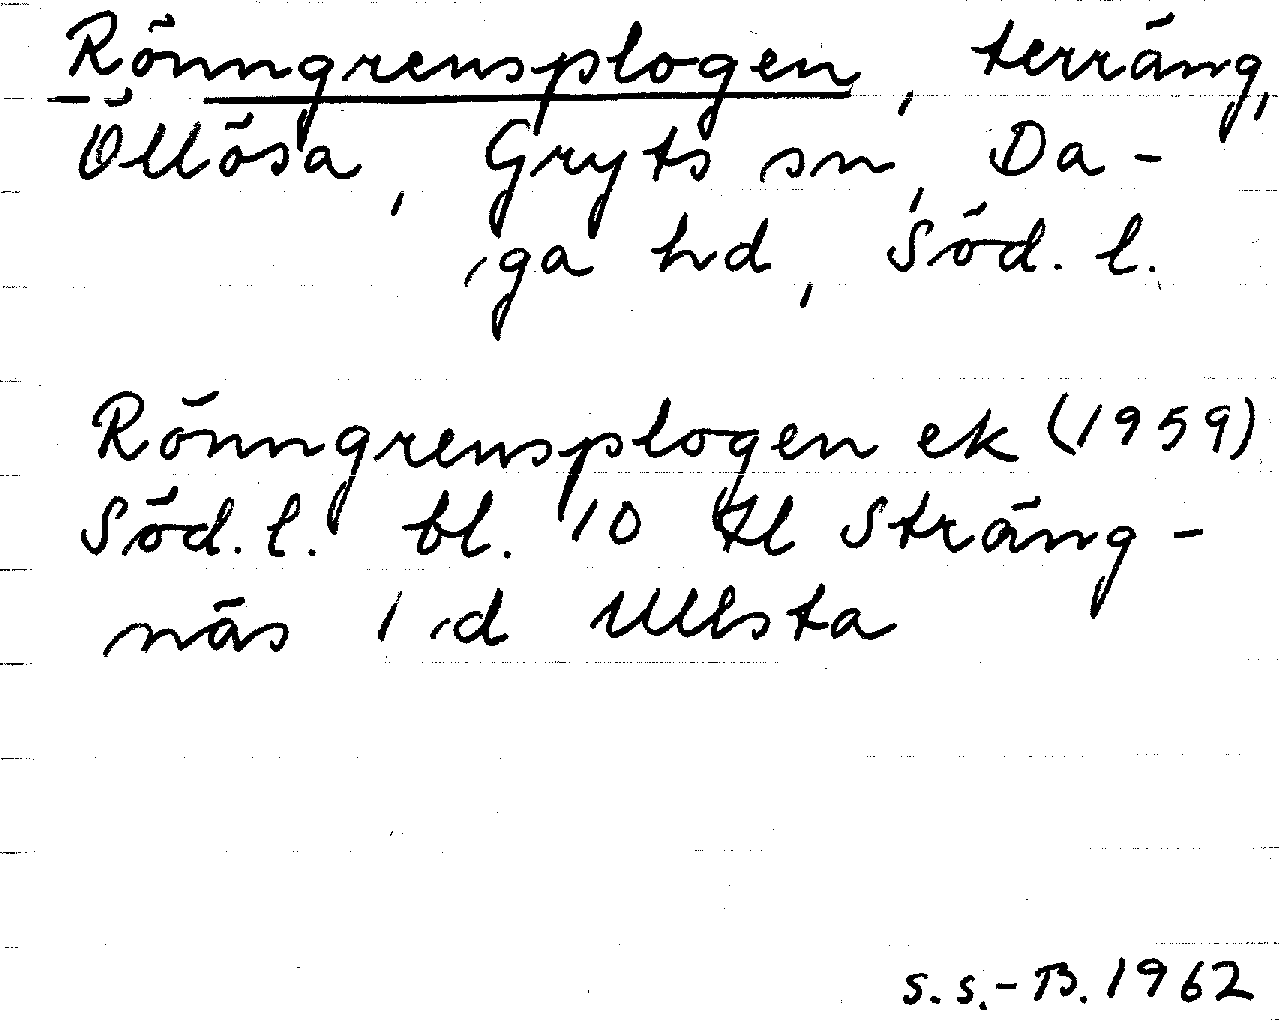 Rönngrensplogen, terräng,
Öllösa, Gryts sn, Da-
ga hd, Söd. l.
Rönngrensplogen ek (1959)
Söd. l. bl. 10 tl Sträng-
näs 1 d Ullsta
S. S.-B. 1962